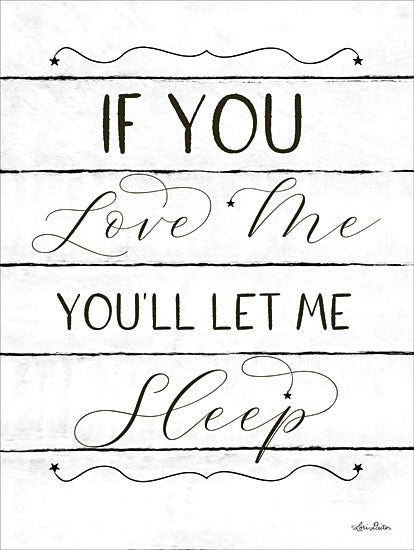 IF YOU
Love Me
YOU'LL LET ME
Sleep
©Lori Deiter